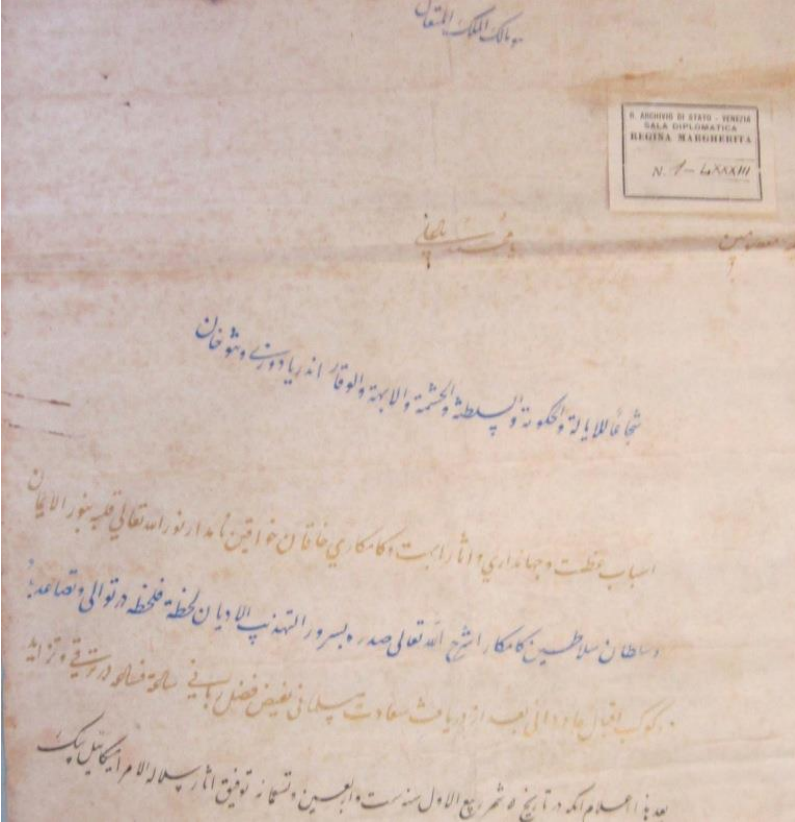 هو مالك الملك المتعال
R. ARCHIVIO DI STATO - VENEZIA
SALA DIPLOMATICA
REGINA MARGHERITA
N. 1 - LXXXIII
شجاعا للايالة والحكومة والسلطنة والحشمة والابهة والوقار اندريا دوزی ونتو خان
اسباب عظمت وجهانداري واثار ابهت وكامكاري خاقان خواقين نامدار نور الله تعالي قلبه بنور الايمان
وسلطان سلاطين كامكار اشرح الله تعالى صدره بسرور التهذيب الاديان لحظة فلحظة در توالى وتصاعد
وكوكب اقبال جاودانى بعد از دريافت سعادت مسلمانى بفيض فضل ربانى ساعة فساعة در ترقى وتزايد
بعد هذا اعلام انكه در تاريخ ٥ شهر ربيع الاول سنه ست واربعين وتسعمائه توفيق اثار سلالة الامرا ميكائيل بيك